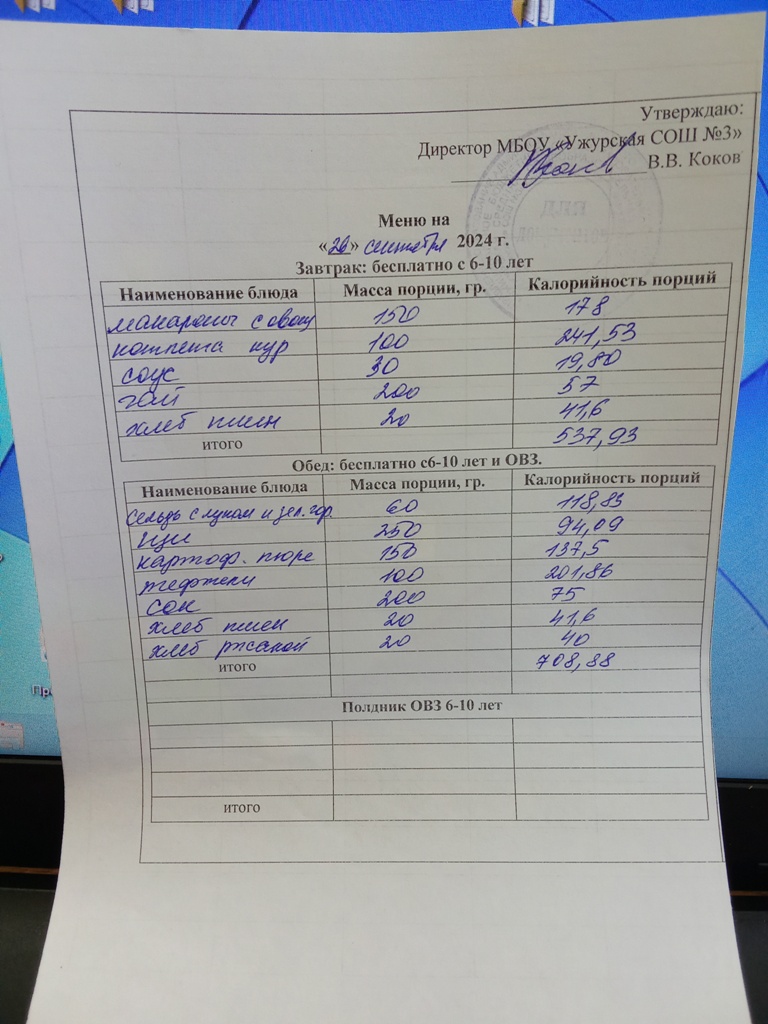 Утверждаю:
Директор МБОУ «Ужурская СОШ №3»
В.В. Коков
Меню на
«26» сентября 2024 г.
Завтрак: бесплатно с 6-10 лет
Наименование блюда Масса порции, гр. Калорийность порций
макароны с овощ 150 178
котлета кур 100 241,53
соус 30 19,80
чай 200 57
хлеб пшен 20 41,6
итого 537,93
Обед: бесплатно с6-10 лет и ОВЗ.
Наименование блюда Масса порции, гр. Калорийность порций
Сельдь с луком и зел. гор. 60 118,83
щи 250 94,09
картоф. пюре 150 137,5
тефтели 100 201,86
сок 200 75
хлеб пшен 20 41,6
хлеб ржаной 20 40
итого 708,88
Полдник ОВЗ 6-10 лет
итого